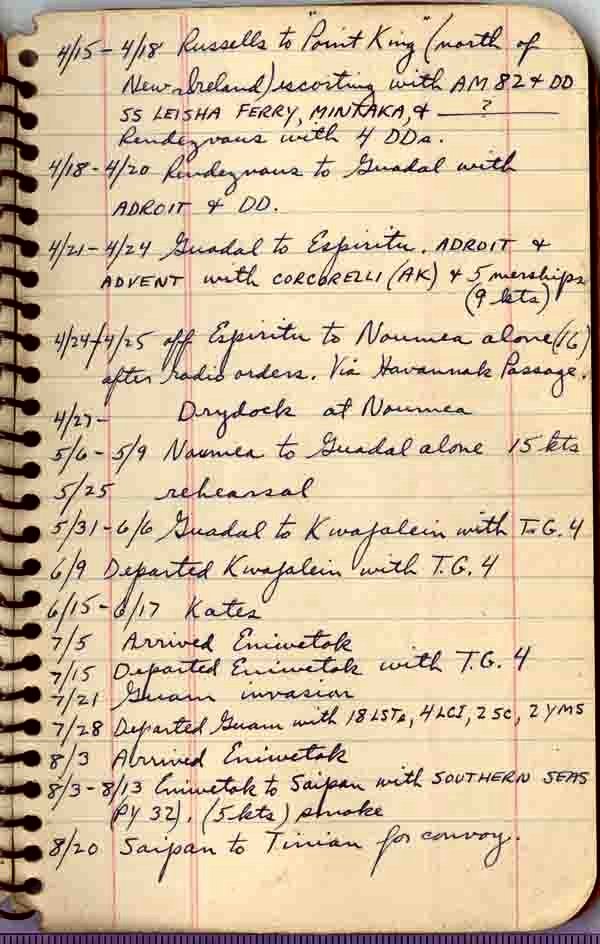 4/15 - 4/18 Russells to "Point King" (north of
New Ireland) escorting with AM 82 & DD
SS LEISHA FERRY, MINTAKA, & ___?___
Rendezvous with 4 DDs.
4/18 - 4/20 Rendezvous to Guadal with
ADROIT & DD.
4/21 - 4/24 Guadal to Espiritu. ADROIT &
ADVENT with CORCORELLI (AK) & 5 merships
(9 kts)
4/24 - 4/25 off Espiritu to Noumea alone (16)
after radio orders. Via Havannah Passage.
4/27 - Drydock at Noumea
5/6 - 5/9 Noumea to Guadal alone 15 kts
5/25 rehearsal
5/31 - 6/6 Guadal to Kwajalein with T.G. 4
6/9 Departed Kwajalein with T.G. 4
6/15 - 6/17 Kates
7/5 Arrived Eniwetok
7/15 Departed Eniwetok with T.G. 4
7/21 Guam invasion
7/28 Departed Guam with 18 LSTs, 4 LCI, 2 SC, 2 YMS
8/3 Arrived Eniwetok
8/3 - 8/13 Eniwetok to Saipan with SOUTHERN SEAS
(PY 32). (5 kts) smoke
8/20 Saipan to Tinian for convoy.